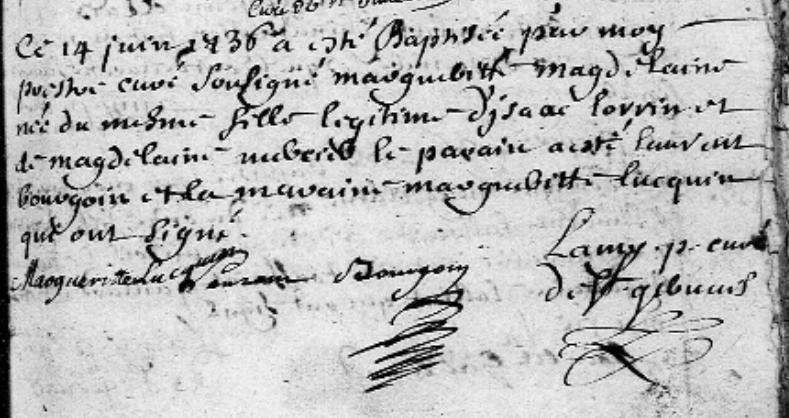 Ce 14 juin 1736 a esté Baptisée par moy
prestre curé sousigné margueritte magdelaine
née du mesme fille legitime d'isaac lorrin et
de magdelaine le parain a esté laurent
bourgoin et la maraine margueritte lucquin
qui ont signé.
Margueritte Lucquin Laurant Bourgoin Lamy p. curé
de St